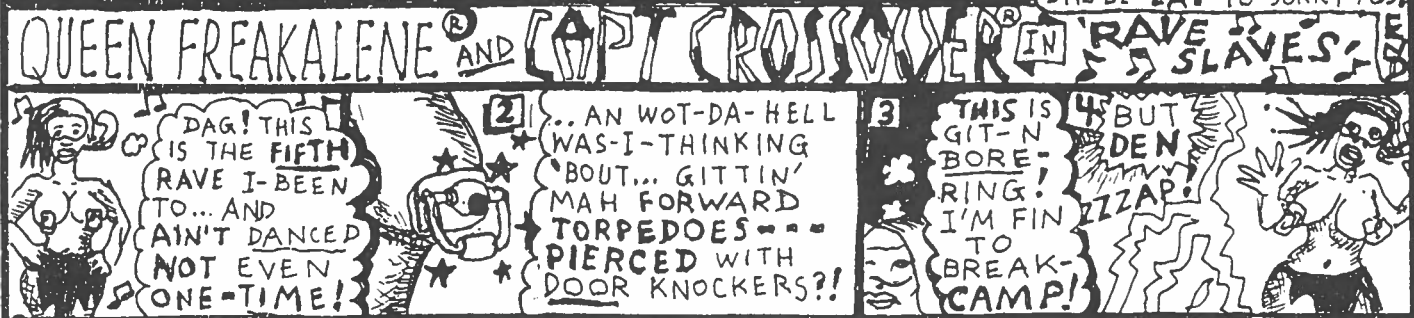 QUEEN FREAKALENE® AND CAPT CROSSOVER® IN 'RAVE SLAVES'
DAG! THIS
IS THE FIFTH
RAVE I-BEEN
TO... AND
AIN'T DANCED
NOT EVEN
ONE-TIME!
2
... AN WOT-DA-HELL
WAS-I-THINKING
'BOUT... GITTIN'
MAH FORWARD
TORPEDOES---
PIERCED WITH
DOOR KNOCKERS?!
3
THIS IS
GIT-N
BORE-
RING!
I'M FIN
TO
BREAK-
CAMP!
4
BUT
DEN
ZZZAP!